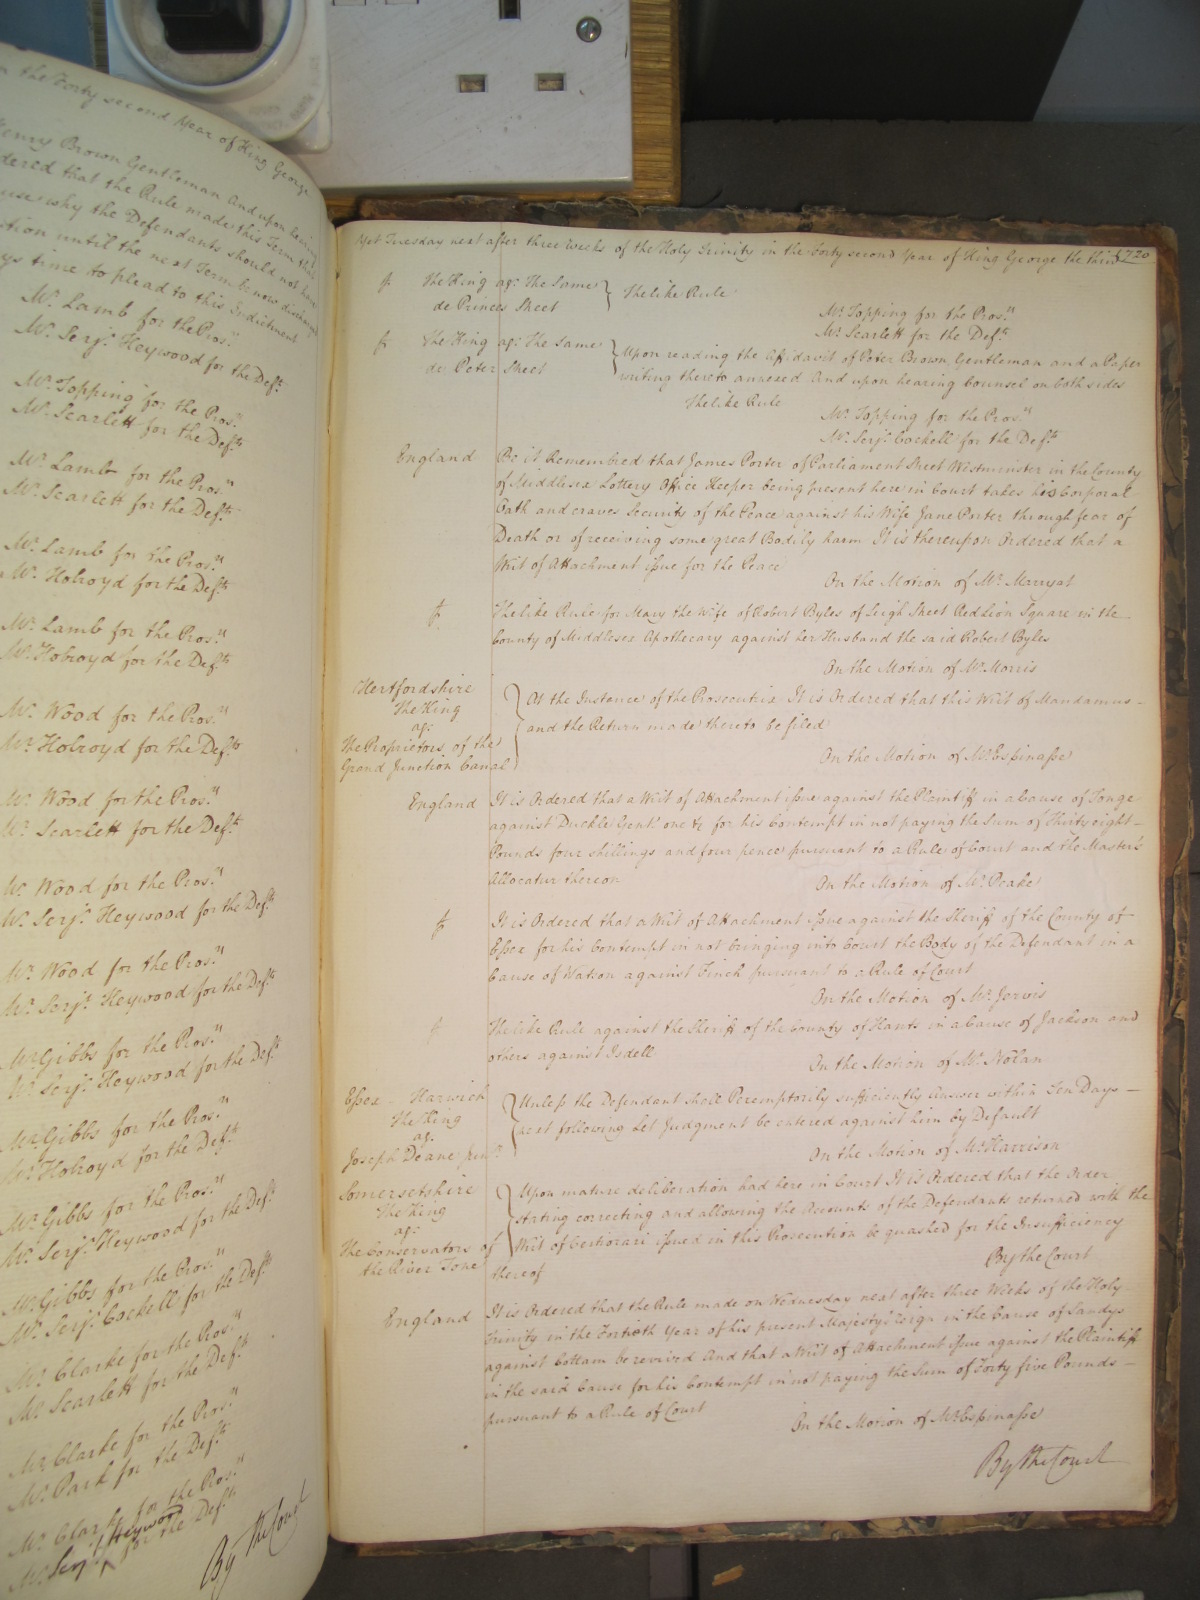 n the Forty second Year of King George
Henry Brown Gentleman And upon hearing
dered that the Rule made this Term that
use why the Defendants should not have
tion until the next Term be now discharged
ys time to plead to this Indictment
Mr. Lamb for the Pros.rs
Mr. Serjt. Heywood for the Defts.
Mr. Topping for the Pros.rs
Mr. Scarlett for the Defts.
Mr. Lamb for the Pros.rs
Mr. Scarlett for the Defts.
Mr. Lamb for the Pros.rs
Mr. Holroyd for the Defts.
Mr. Lamb for the Pros.rs
Mr. Holroyd for the Defts.
Mr. Wood for the Pros.rs
Mr. Holroyd for the Defts.
Mr. Wood for the Pros.rs
Mr. Scarlett for the Defts.
Mr. Wood for the Pros.rs
Mr. Serjt. Heywood for the Defts.
Mr. Wood for the Pros.rs
Mr. Serjt. Heywood for the Defts.
Mr. Gibbs for the Pros.rs
Mr. Serjt. Heywood for the Defts.
Mr. Gibbs for the Pros.rs
Mr. Holroyd for the Defts.
Mr. Gibbs for the Pros.rs
Mr. Serjt. Heywood for the Defts.
Mr. Gibbs for the Pros.rs
Mr. Serjt. Cockell for the Defts.
Mr. Clarke for the Pros.rs
Mr. Scarlett for the Defts.
Mr. Clarke for the Pros.rs
Mr. Park for the Defts.
Mr. Clarke for the Pros.rs
Mr. Serjt. Heywood for the Defts.
By the Court
Yet Tuesday next after three weeks of the Holy Trinity in the forty second Year of King George the third 1720
The King agt. The Same } The like Rule
de Princes Street
Mr. Topping for the Pros.rs
Mr. Scarlett for the Deft.
The King agt. The Same } Upon reading the Affidavit of Peter Brown Gentleman and a Paper
de Peter Street writing thereto annexed And upon hearing Counsel on both sides
The like Rule
Mr. Topping for the Pros.rs
Mr. Serjt. Cockell for the Defts.
England Be it Remembred that James Porter of Parliament Street Westminster in the County
of Middlesex Lottery Office Keeper being present here in Court takes his Corporal
Oath and craves Security of the Peace against his Wife Jane Porter through fear of
Death or of receiving some great Bodily harm It is thereupon Ordered that a
Writ of Attachment issue for the Peace
On the Motion of Mr. Marryat
The like Rule for Mary the Wife of Robert Byles of Leigh Street Red Lion Square in the
County of Middlesex Apothecary against her Husband the said Robert Byles
On the Motion of Mr. Morris
Hertfordshire
The King
agt.
The Proprietors of the
Grand Junction Canal
At the Instance of the Prosecutrix It is Ordered that this Writ of Mandamus
and the Return made thereto be filed
On the Motion of Mr. Espinasse
England It is Ordered that a Writ of Attachment issue against the Plaintiff in a Cause of Tonge
against Duckle Gent. one &c for his Contempt in not paying the Sum of Thirty eight
Pounds four shillings and four pence pursuant to a Rule of Court and the Master's
Allocatur thereon
On the Motion of Mr. Peake
It is Ordered that a Writ of Attachment issue against the Sheriff of the County of
Essex for his Contempt in not bringing into Court the Body of the Defendant in a
Cause of Watson against Finch pursuant to a Rule of Court
On the Motion of Mr. Jervis
The like Rule against the Sheriff of the County of Hants in a Cause of Jackson and
others against Isdell
On the Motion of Mr. Nolan
Essex Harwich
The King
agt.
Joseph Deane junr.
Unless the Defendant shall Peremptorily sufficiently Answer within Ten Days
next following Let Judgment be entered against him by Default
On the Motion of Mr. Harrison
Somersetshire
The King
agt.
The Conservators of
the River Tone
Upon mature deliberation had here in Court It is Ordered that the Order
stating correcting and allowing the Accounts of the Defendants returned with the
Writ of Certiorari issued in this Prosecution be quashed for the Insufficiency
thereof
By the Court
England It is Ordered that the Rule made on Wednesday next after three Weeks of the Holy
Trinity in the Fortieth Year of his present Majesty's reign in the Cause of Sandys
against Cottam be revived And that a Writ of Attachment issue against the Plaintiff
in the said Cause for his Contempt in not paying the Sum of Forty five Pounds
pursuant to a Rule of Court
On the Motion of Mr. Espinasse
By the Court